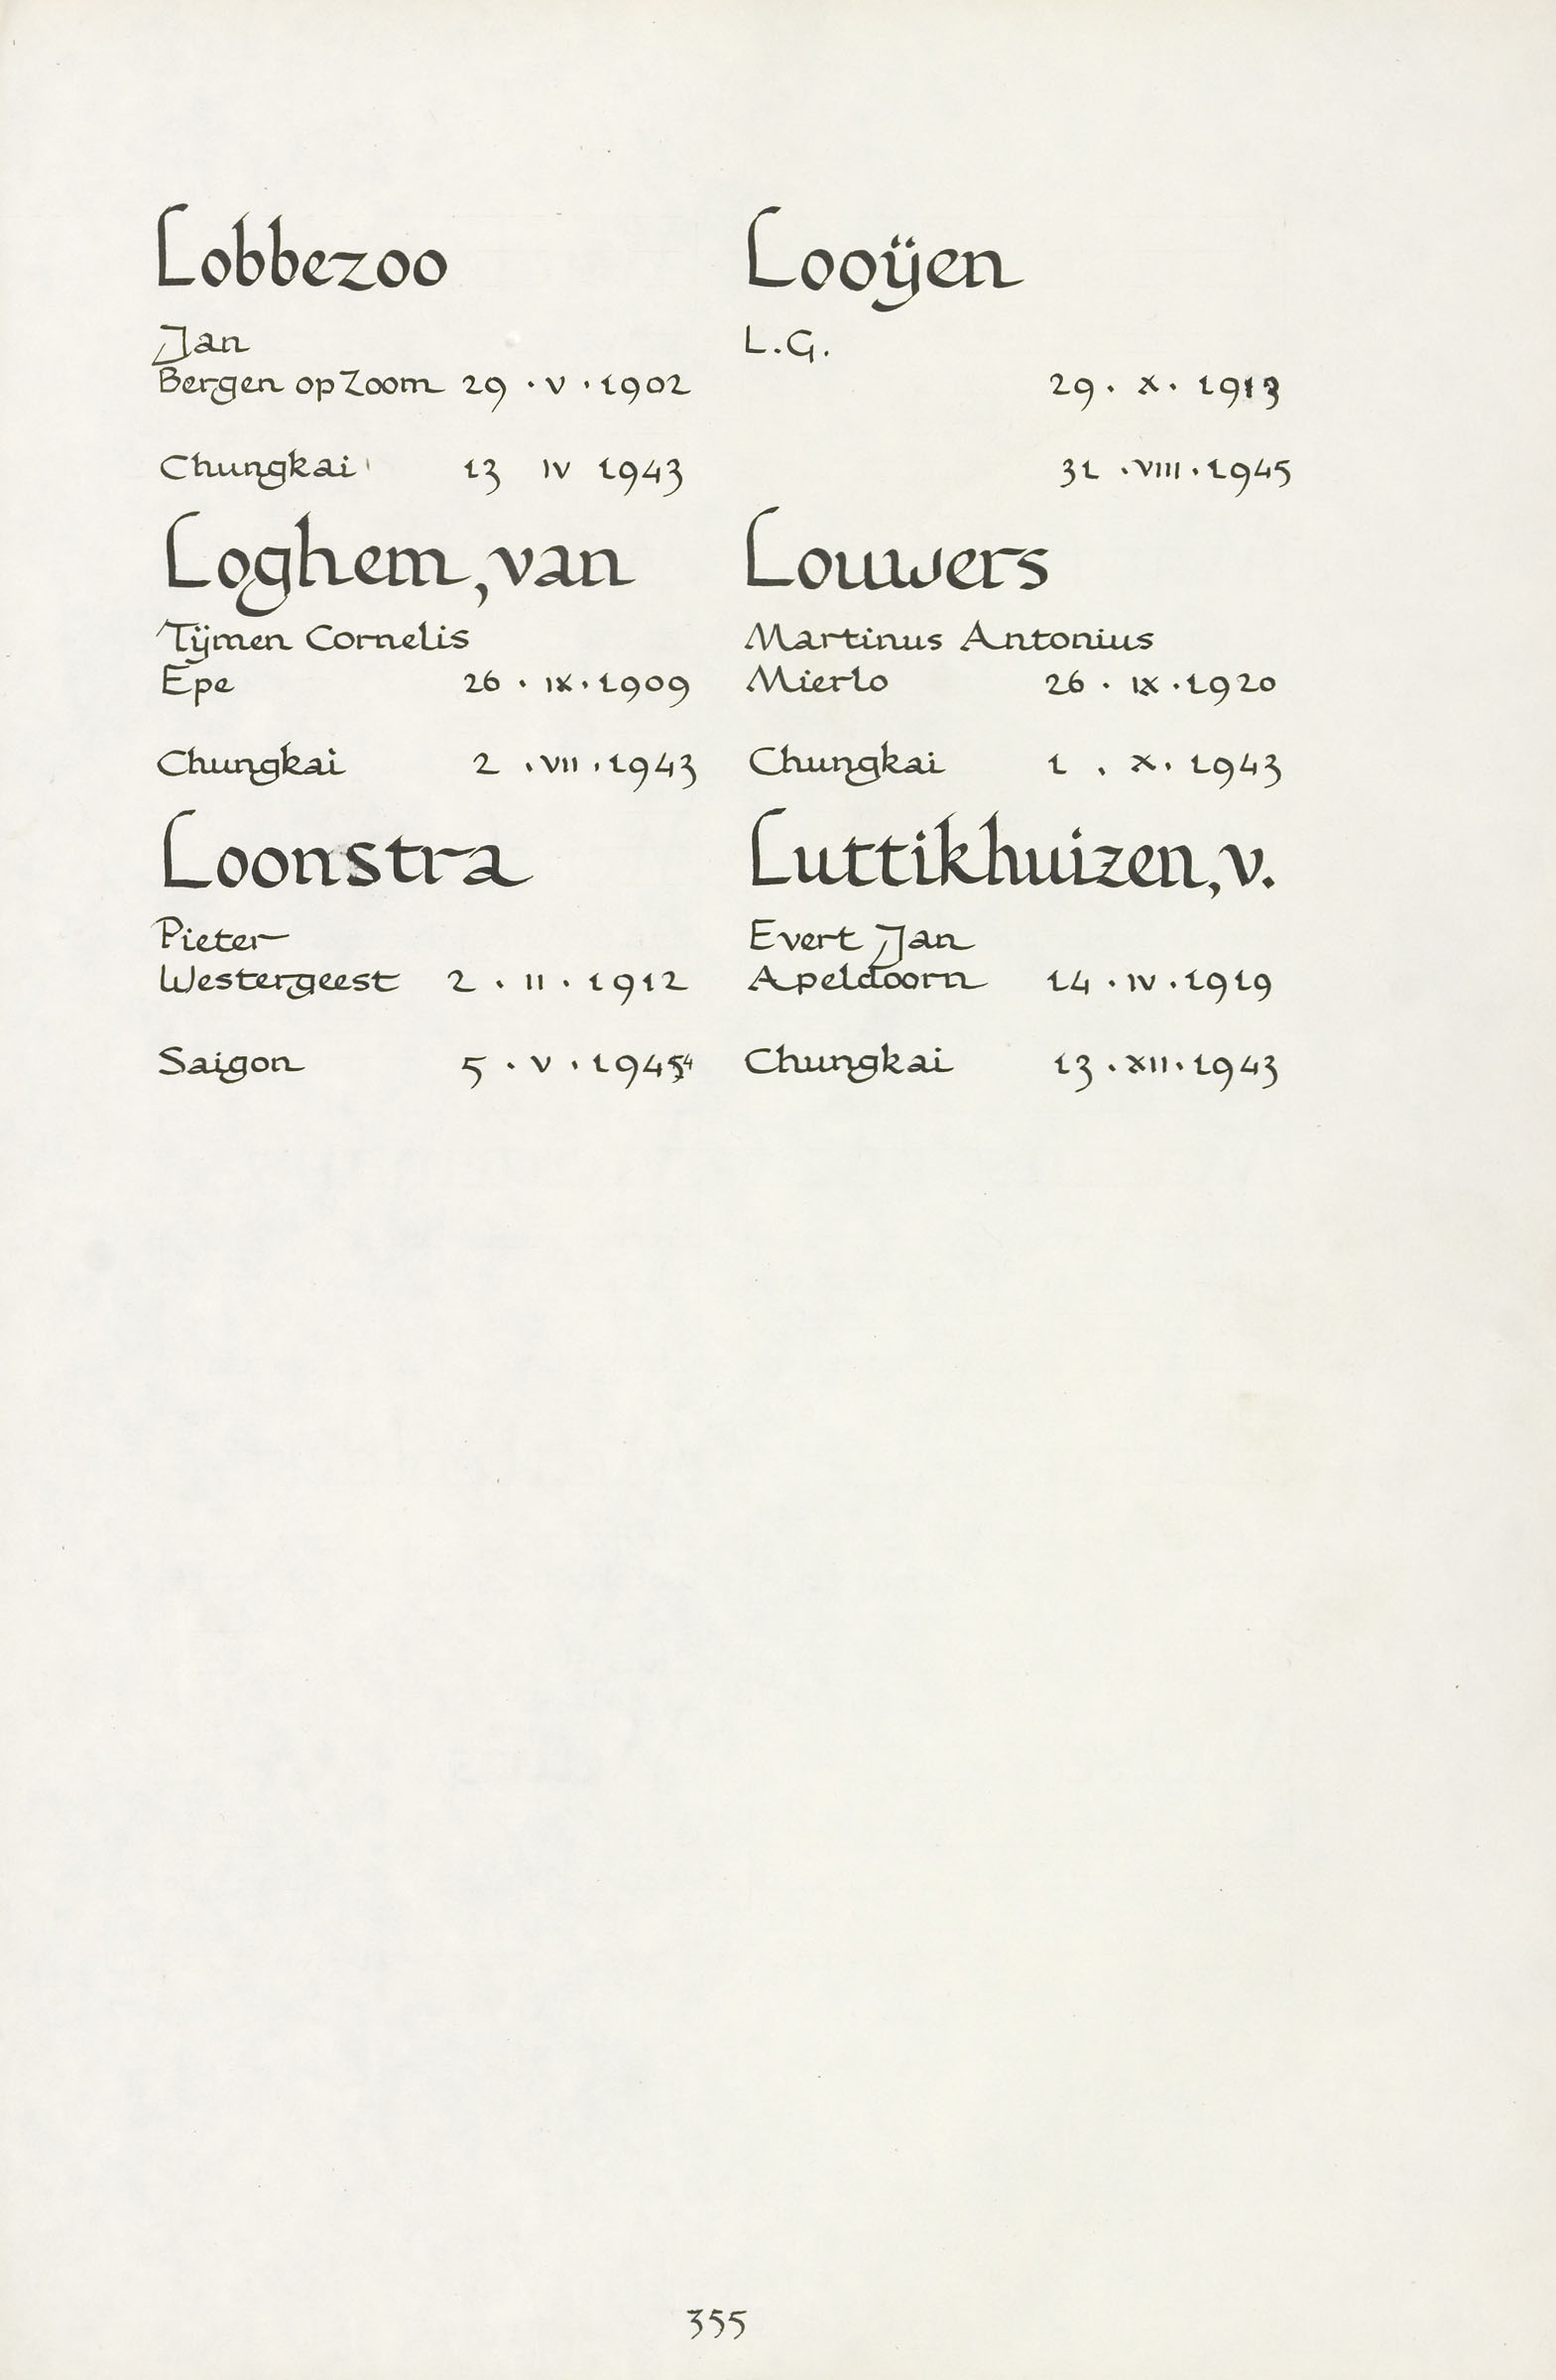 Lobbezoo
Jan
Bergen op Zoom 29 · V · 1902
Chungkai 13 IV 1943
Loghem, van
Tijmen Cornelis
Epe 26 · IX · 1909
Chungkai 2 · VII · 1943
Loonstra
Pieter
Westergeest 2 · II · 1912
Saigon 5 · V · 1945 4
Looijen
L.G.
29 · X · 1913
31 · VIII · 1945
Louwers
Martinus Antonius
Mierlo 26 · IX · 1920
Chungkai 1 · X · 1943
Luttikhuizen, v.
Evert Jan
Apeldoorn 14 · IV · 1919
Chungkai 13 · XII · 1943
355